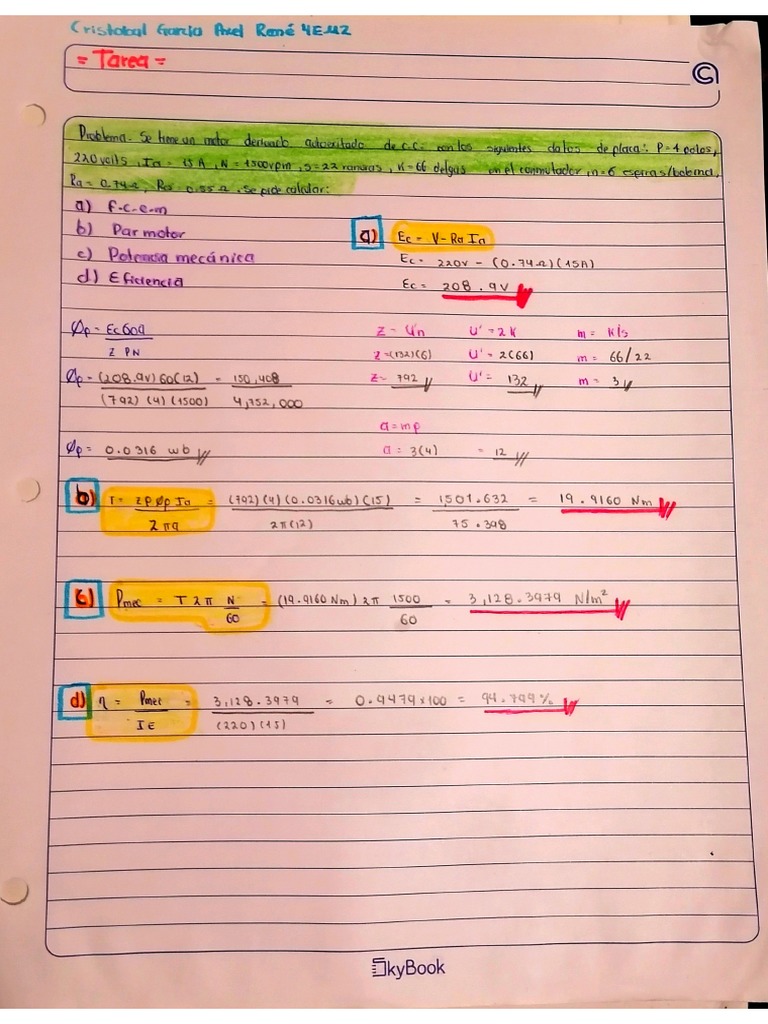 Cristobal Garcia Axel René 4EM2
= Tarea =
Problema. Se tiene un motor derivado autoexitado de c.c. con los siguientes datos de placa: P=4 polos,
220 volts, Ia = 15 A, N = 1500 rpm, s=22 ranuras, K=66 delgas en el conmutador, n=6 espiras/bobina,
Ra = 0.74Ω, se pide calcular:
a) f.c.e.m
b) Par motor
c) Potencia mecánica
d) Eficiencia
a) Ec = V-Ra Ia
Ec = 220v - (0.74Ω)(15A)
Ec = 208.9v
Øp = Ec60a / Z PN
Z = U'n U' = 2K m = K/s
Z=(132)(6) U' = 2(66) m = 66/22
Z= 792 U' = 132 m = 3
Øp = (208.9v)60(12) / (792)(4)(1500) = 150,408 / 4,752,000
a=mp
a = 3(4) = 12
Øp = 0.0316 wb
b) T = ZpØp Ia / 2πa = (792)(4)(0.0316wb)(15) / 2π(12) = 1,501.632 / 75.398 = 19.9160 Nm
c) Pmec = T2π N/60 = (19.9160 Nm) 2π 1500/60 = 3,128.3979 N/m²
d) η = Pmec / IE = 3,128.3979 / (220)(15) = 0.9479x100 = 94.799%
SkyBook